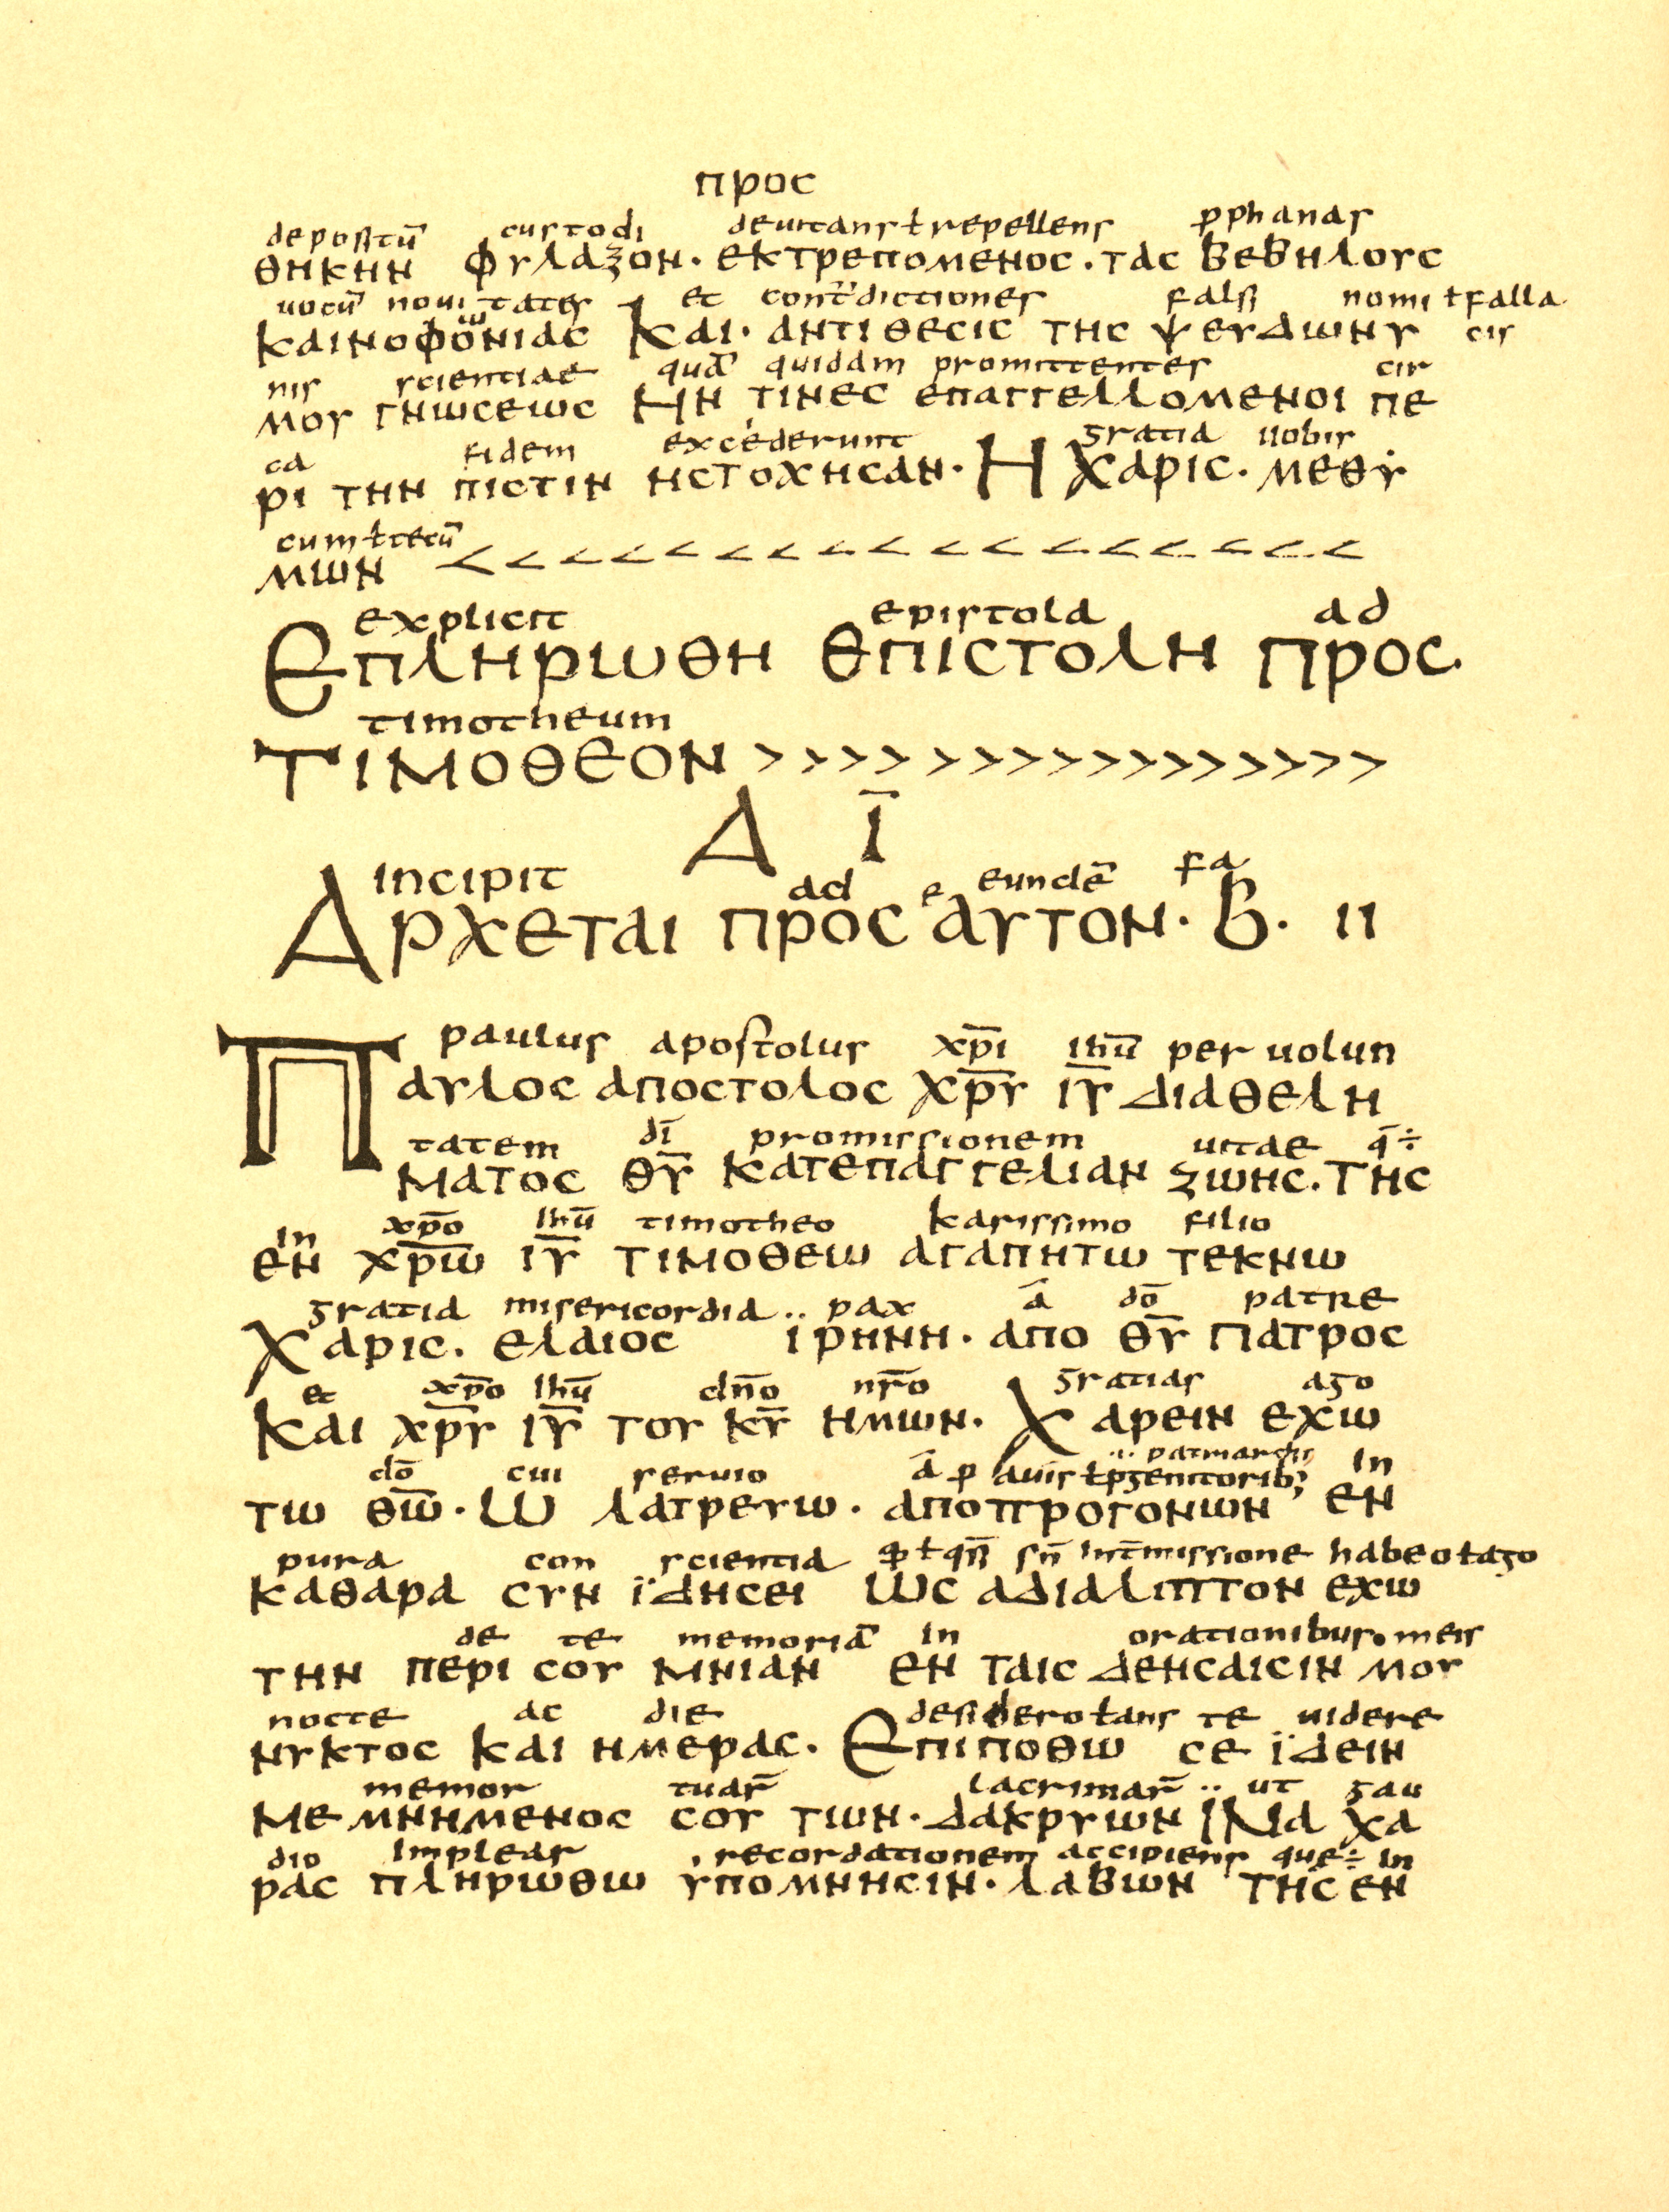 προς
depositū custodi deuitans ł repellens ꝓphanas
θηκην φυλαξον· εκτρεπομενος· τας βεβηλους
uocū nouitates et cont̄dictiones falsi nomi ł falla
ω
καινοφονιας Και· αντιθεσις της ψευδωνυ cis
nis scientiae quā quidam promittentes cir
μου γνωσεως Ην τινες επαγγελλομενοι πε
ca fidem excederunt gratia uobis
ρι την πιστιν ηστοχησαν· Η Χαρις· μεθυ
cum ł tecū
μων < < < < < < < < < < < < < < < < <
explicit epistola ad
Επληρωθη επιστολη προς·
timotheum
Τιμοθεον > > > > > > > > > > > > > > > > >
Δ Ī
incipit ad e eundē fa
Αρχεται προς αυτον· Β· II
paulus apostolus xp̄i ihū per uolun
Παυλος αποστολος χρ̄υ ῑυ διαθελη
tatem dī promissionem uitae q̄ ÷
ματος θ̄υ κατεπαγγελιαν ζωης· Της
in xp̄o ihū timotheo karissimo filio
εν χρ̄ω ῑυ τιμοθεω αγαπητω τεκνω
gratia misericordia .. pax ā dō patre
Χαρις· ελαιος ιρηνη· απο θ̄υ πατρος
et xp̄o ihū dn̄o nr̄o gratias ago
Και χρ̄υ ῑυ του κ̄υ ημων· Χαρειν εχω
.. patriarchis
dō cui seruio ā ꝓ auis ł ꝓgenitorib; in
τω θ̄ω· Ω λατρευω· αποπρογονων εν
pura con scientia ꝙ ł qn̄ sn̄ int̄missione habeo ł ago
καθαρα συν ϊδησει Ως αδιαλιπτον εχω
de te memoriā in orationibus· meis
την περι σου μνιαν εν ταις δεησαισιν μου
nocte ac die desidero ł ans te uidere
νυκτος και ημερας· Επιποθω σε ϊδειν
memor tuar̄ lacrimar̄ .. ut gau
μεμνημενος σου των· δακρυων ΙΝα χα
dio implear recordationem accipiens que ÷ in
ρας πληρωθω υπομνησιν· λαβων της εν